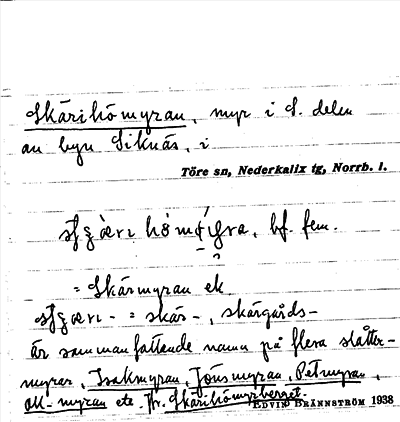 Skärihömyran, myr i S. delen
av byn Siknäs, i
Töre sn, Nederkalix tg, Norrb. l.
bf. fem.
= Skärmyran ek
= skär-, skärgårds-
är sammanfattande namn på flera slåtter-
myrar, Isakmyran, Jönsmyran, Petmyran,
-myran etc. Jfr. Skärihömyrberget.
EDVIN BRÄNNSTRÖM 1938